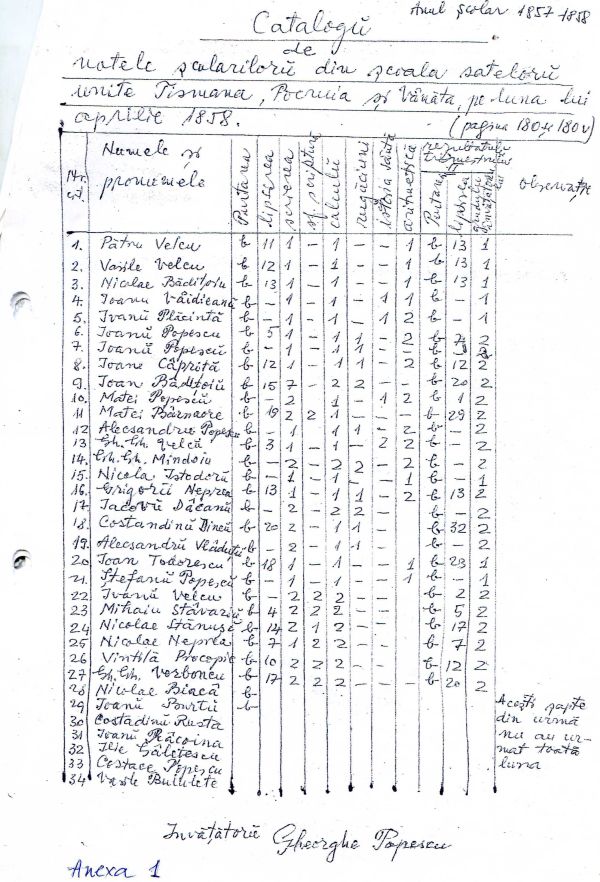 Anul școlar 1857-1858
Catalogŭ
de
notele școlarilorŭ din școala satelorŭ
unite Tismana, Pocruia și Vânăta, pe luna lui
aprilie 1858. (pagina 180 și 180 v)
Nr. crt. Numele și pronumele Purtarea lipsirea scrierea calculŭ rugăciuni istoria sfântă aritmetica Purtarea lipsirea observații
1. Pătru Velcu b 11 1 – 1 – – 1 b 13 1
2. Vasile Velcu b 12 1 – 1 – – 1 b 13 1
3. Nicolae Bădițoiu b 13 1 – 1 – – 1 b 13 1
4. Ioanu Vâidieană b – 1 – 1 – 1 1 b – 1
5. Ivanŭ Plăcintă b – 1 – 1 – 1 2 b – 1
6. Ioanŭ Popescu b 5 1 – 1 1 – 2 b 7 2
7. Ioanŭ Popescŭ b – 1 – 1 1 – – b
8. Ioane Câpriță b 12 1 – 1 1 – 2 b 12 2
9. Ioan Bădițoiu b 15 7 – 2 2 – – b 20 2
10. Matei Popescŭ b – 2 – 1 – 1 2 b 1 2
11 Matei Bârnaore b 19 2 2 1 – – – b 29 2
12 Alecsandru Popescu b – 1 – 1 1 – 2 b – 2
13 Gh. Gh. Velcă b 3 1 – 1 – 2 2 b – 2
14. Gh. Gh. Mindoiu b – 2 – 2 2 – 2 b – 2
15. Nicola Istodorŭ b – 1 – 1 – – – b – 1
16. Grigorii Neprea b 13 1 – 1 1 – 2 b 13 2
17. Iacovŭ Dăcanŭ b – 2 – 2 2 – – b – 2
18. Costandinŭ Dincă b 20 2 – 1 1 – – b 32 2
19. Alecsandrŭ Vlăduțu b – 2 – 1 1 – – b – 2
20 Ioan Todorescu b 18 1 – 1 – – 1 b 23 1
21. Ștefanŭ Popescŭ b – 1 – 1 – – 1 b – 1
22 Ivanŭ Velcu b – 2 2 2 – – – b 2 2
23 Mihaiu Stăvariŭ b 4 2 2 2 – – – b 5 2
24 Nicolae Stănușă b 14 2 1 2 – – – b 17 2
25 Nicolae Neprea b 7 1 2 2 – – – b 7 2
26 Vintilă Procopie b 10 2 2 2 – – – b 12 2
27 Gh. Gh. Vorboncu b 17 2 2 2 – – – b 20 2
28 Nicolae Biacă b
29 Ioanŭ Burtŭ b
30 Costadinŭ Rusta
31 Ioanŭ Răcoina
32 Ilie Gâlețescu
33 Costace Popescu
34 Vasile Buculete
Acești șapte
din urmă
nu au ur-
mat toată
luna
Învățătorŭ Gheorghe Popescu
Anexa 1